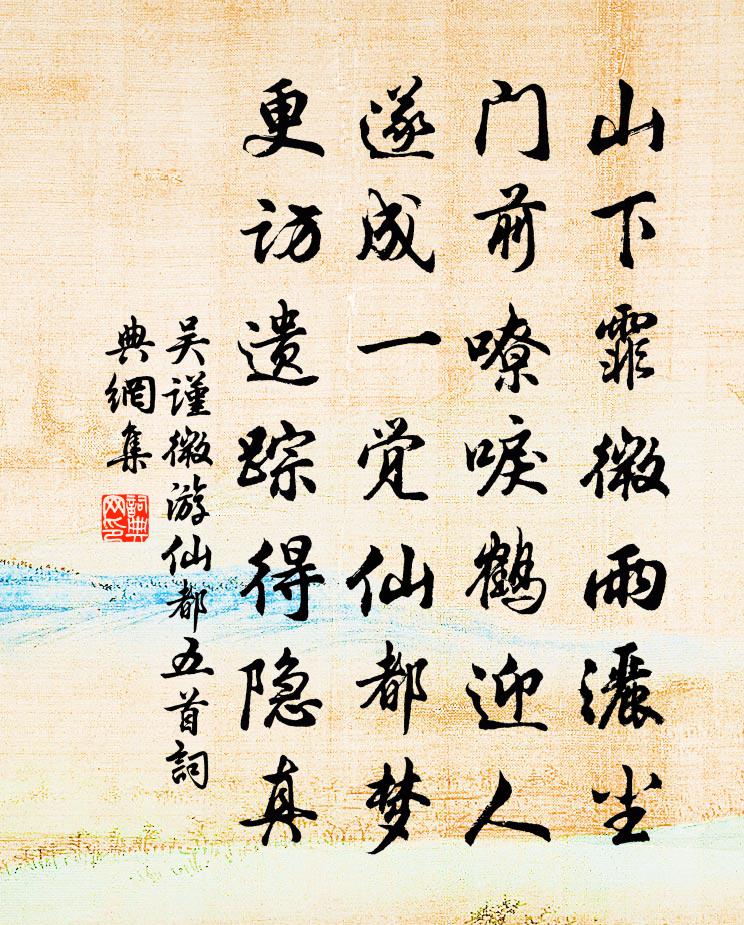 山下霏微雨灑尘
门前嘹唳鹤迎人
遂成一觉仙都梦
更访遗踪得隐真
吴谨微游仙都五首詞
典網集
詞典
网印